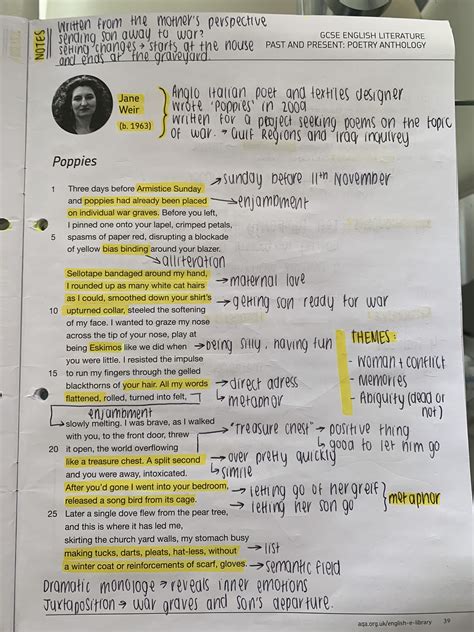 NOTES
Written from the mother's perspective
sending son away to war?
setting changes → starts at the house
and ends at the graveyard.
GCSE ENGLISH LITERATURE
PAST AND PRESENT: POETRY ANTHOLOGY
Jane
Weir
(b. 1963)
Anglo Italian poet and textiles designer
wrote 'poppies' in 2009
written for a project seeking poems on the topic
of war. → Gulf Regions and Iraq inquirey
Poppies
1 Three days before Armistice Sunday
→ sunday before 11th November
and poppies had already been placed
→ enjambment
on individual war graves. Before you left,
I pinned one onto your lapel, crimped petals,
5 spasms of paper red, disrupting a blockade
of yellow bias binding around your blazer.
→ alliteration
Sellotape bandaged around my hand,
I rounded up as many white cat hairs
→ maternal love
as I could, smoothed down your shirt's
→ getting son ready for war
10 upturned collar, steeled the softening
of my face. I wanted to graze my nose
across the tip of your nose, play at
being Eskimos like we did when
→ being silly, having fun
you were little. I resisted the impulse
15 to run my fingers through the gelled
blackthorns of your hair. All my words
→ direct adress
flattened, rolled, turned into felt,
→ metaphor
THEMES:
- Woman + conflict
- Memories
- Abiguity (dead or
not)
enjambment
slowly melting. I was brave, as I walked
with you, to the front door, threw
→ "treasure chest" → positive thing
→ good to let him go
20 it open, the world overflowing
like a treasure chest. A split second
→ over pretty quickly
and you were away, intoxicated.
→ simile
After you'd gone I went into your bedroom,
→ letting go of her greif
released a song bird from its cage.
→ letting her son go
metaphor
25 Later a single dove flew from the pear tree,
and this is where it has led me,
skirting the church yard walls, my stomach busy
making tucks, darts, pleats, hat-less, without
→ list
a winter coat or reinforcements of scarf, gloves.
→ semantic field
Dramatic monologe → reveals inner emotions
Juxtaposition → war graves and son's departure.
aqa.org.uk/english-e-library 39